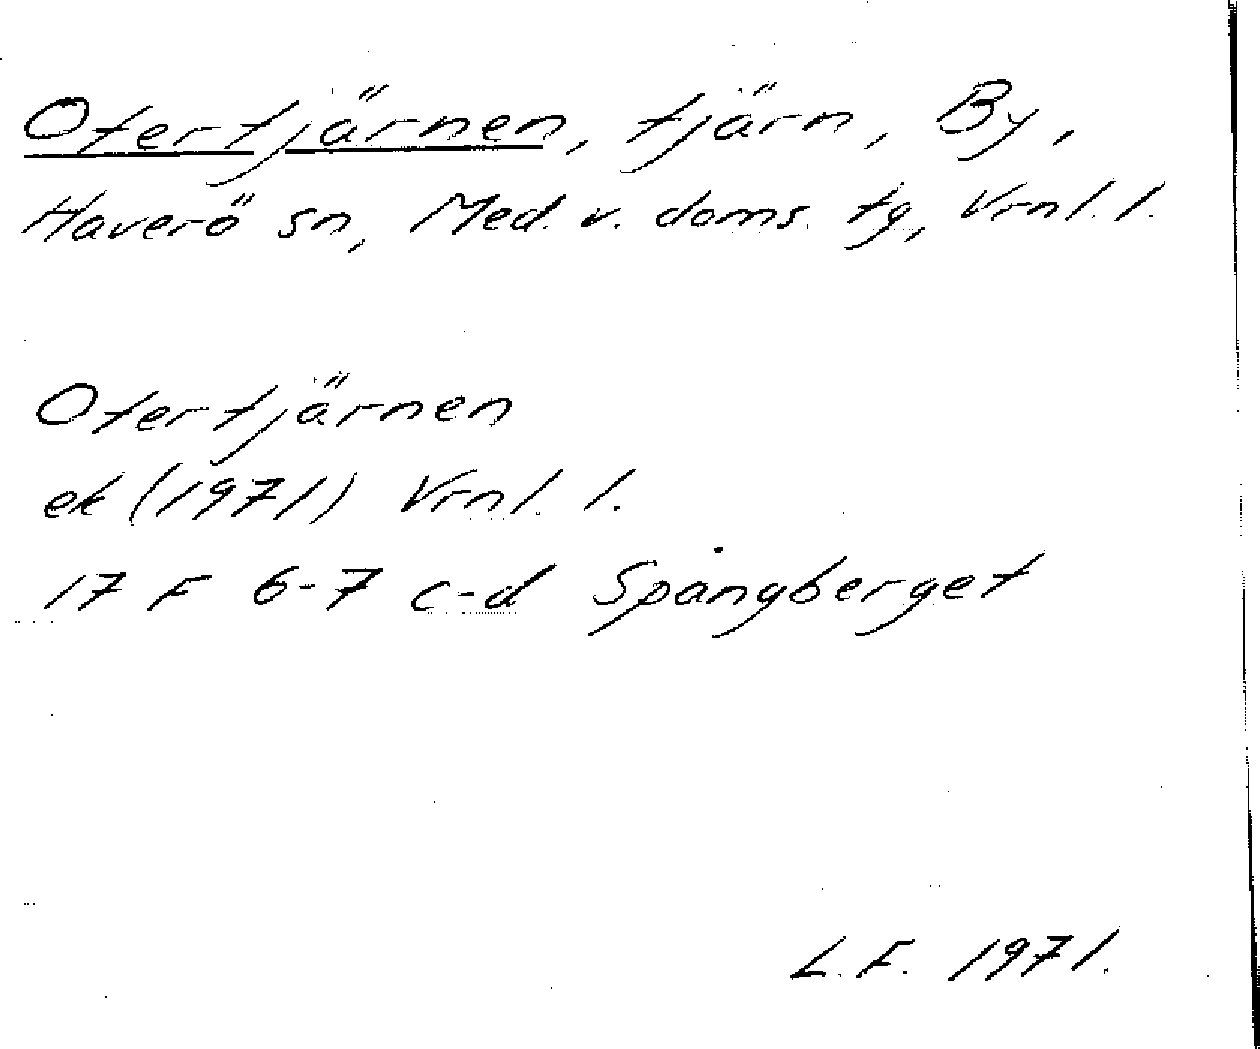 Otertjärnen, tjärn, By,
Haverö sn, Med. v. doms. tg, Vrnl. l.
Otertjärnen
ek (1971) Vrnl. l.
17 F 6-7 c-d Spångberget
L.F. 1971.